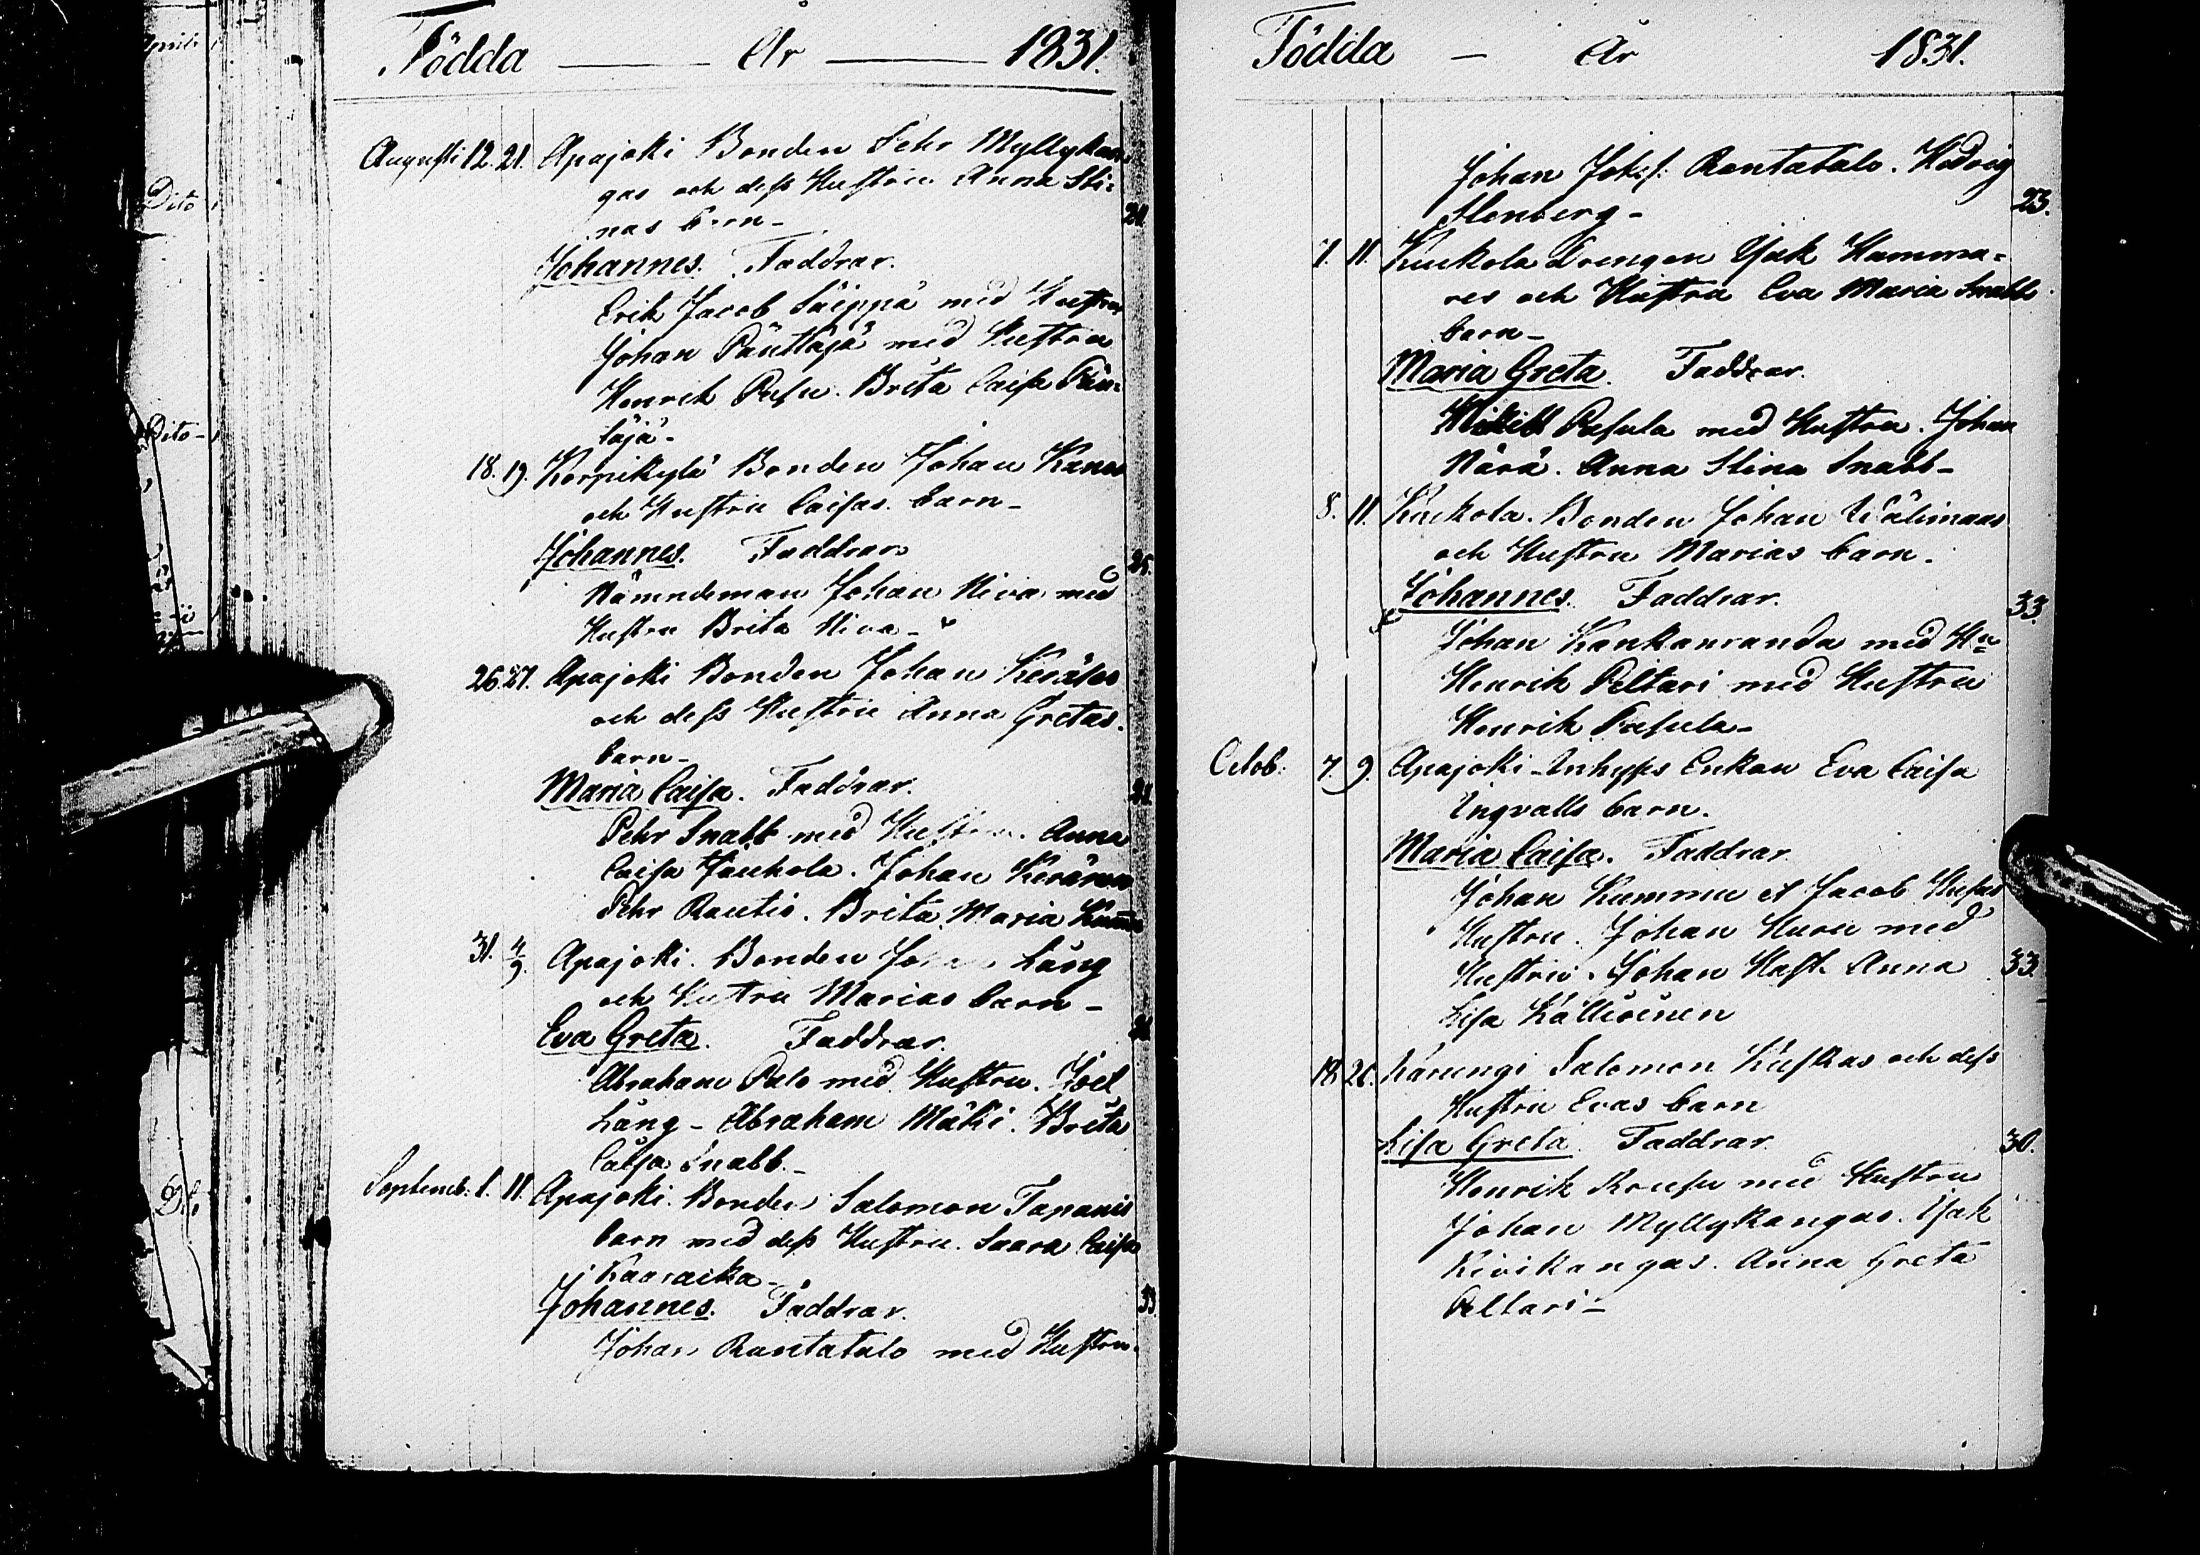 Födda — År — 1831.
Augusti 12. 21. Apajoki Bonden Pehr Myllykan-
gas och dess Hustru Anna Sti-
nas barn-
Johannes. Faddrar.
Erik Jacob Säippä med Hustru
Johan Päuttäjä med Hustru
Henrik Rusu. Brita Caisa Päu-
täjä-
18. 19. Korpikylä Bonden Johan Kanas
och Hustru Caisas barn-
Johannes. Faddrar
25.
Nämndeman Johan Niva med
Hustru Brita Niva-
26. 27. Apajoki Bonden Johan
och dess Hustru Anna Gretas
barn-
Maria Caisa. Faddrar.
Pehr Snabb med Hustru. Anna
Caisa Jaukola. Johan Keränen
Pehr Rautio. Brita Maria
31. 4/9. Apajoki. Bonden Johan Lång
och Hustru Marias barn-
Eva Greta. Faddrar.
Abraham Palo med Hustru. Joel
Lång- Abraham Mäki. Brita
Caisa Snabb-
Septemb. 1. 11. Apajoki. Bonden Salomon Tapanis
barn med dess Hustru. Saara Caisa
Kaaraika-
Johannes. Faddrar.
33.
Johan Rantatalo med Hustru.
Födda - År 1831.
Johan Johs: Rantatalo. Hedvig
Stenberg- 23.
7. 11. Kuckola Drengen Isak Hamma-
res och Hustru Eva Maria Snabbs
barn-
Maria Greta. Faddrar.
Mikell Pasula med Hustru. Johan
Närä. Anna Stina Snabb-
8. 11. Kuckola. Bonden Johan Wälimaas
och Hustru Marias barn.
Johannes. Faddrar. 33.
Johan Kankanranda med Hu
Henrik Peltari med Hustru
Henrik Pasula-
Octob: 7. 9. Apajoki-Inhyses Enkan Eva Caisa
Ingvalls barn.
Maria Caisa. Faddrar
Johan Kummu et Jacob
Hustru. Johan Huru med
Hustru. Johan Hast. Anna 33.
Lisa Källöinen
18. 20. Karungi Salomon Kustas och dess
Hustru Evas barn
Lisa Greta. Faddrar. 30.
Henrik Rousu med Hustru
Johan Myllykangas. Isak
Kivikangas. Anna Greta
Peltari-